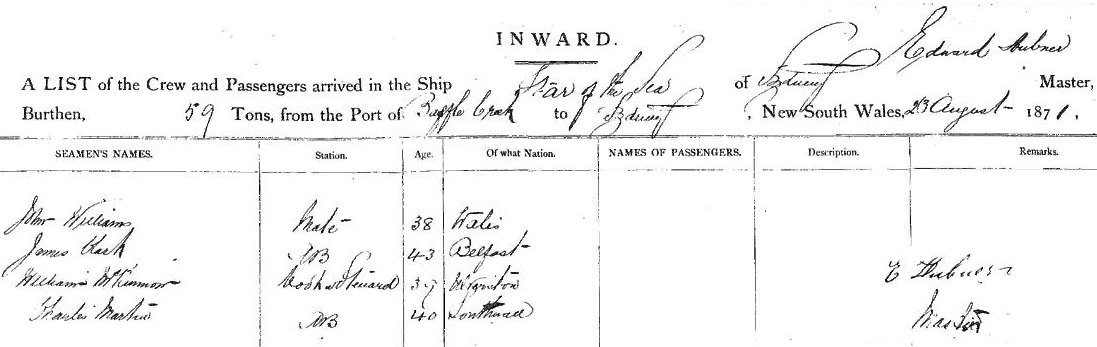 INWARD.
Edward Hubner
A LIST of the Crew and Passengers arrived in the Ship Star of the Sea of Sydney Master,
Burthen, 59 Tons, from the Port of Baffle Creek to Sydney, New South Wales, 23 August 1871.
SEAMEN'S NAMES. Station. Age. Of what Nation. NAMES OF PASSENGERS. Description. Remarks.
John Williams Mate 38 Wales
James Clark AB 43 Belfast
William McKinnon Cook & Steward
E Hubner
Charles Martin AB 40
Master